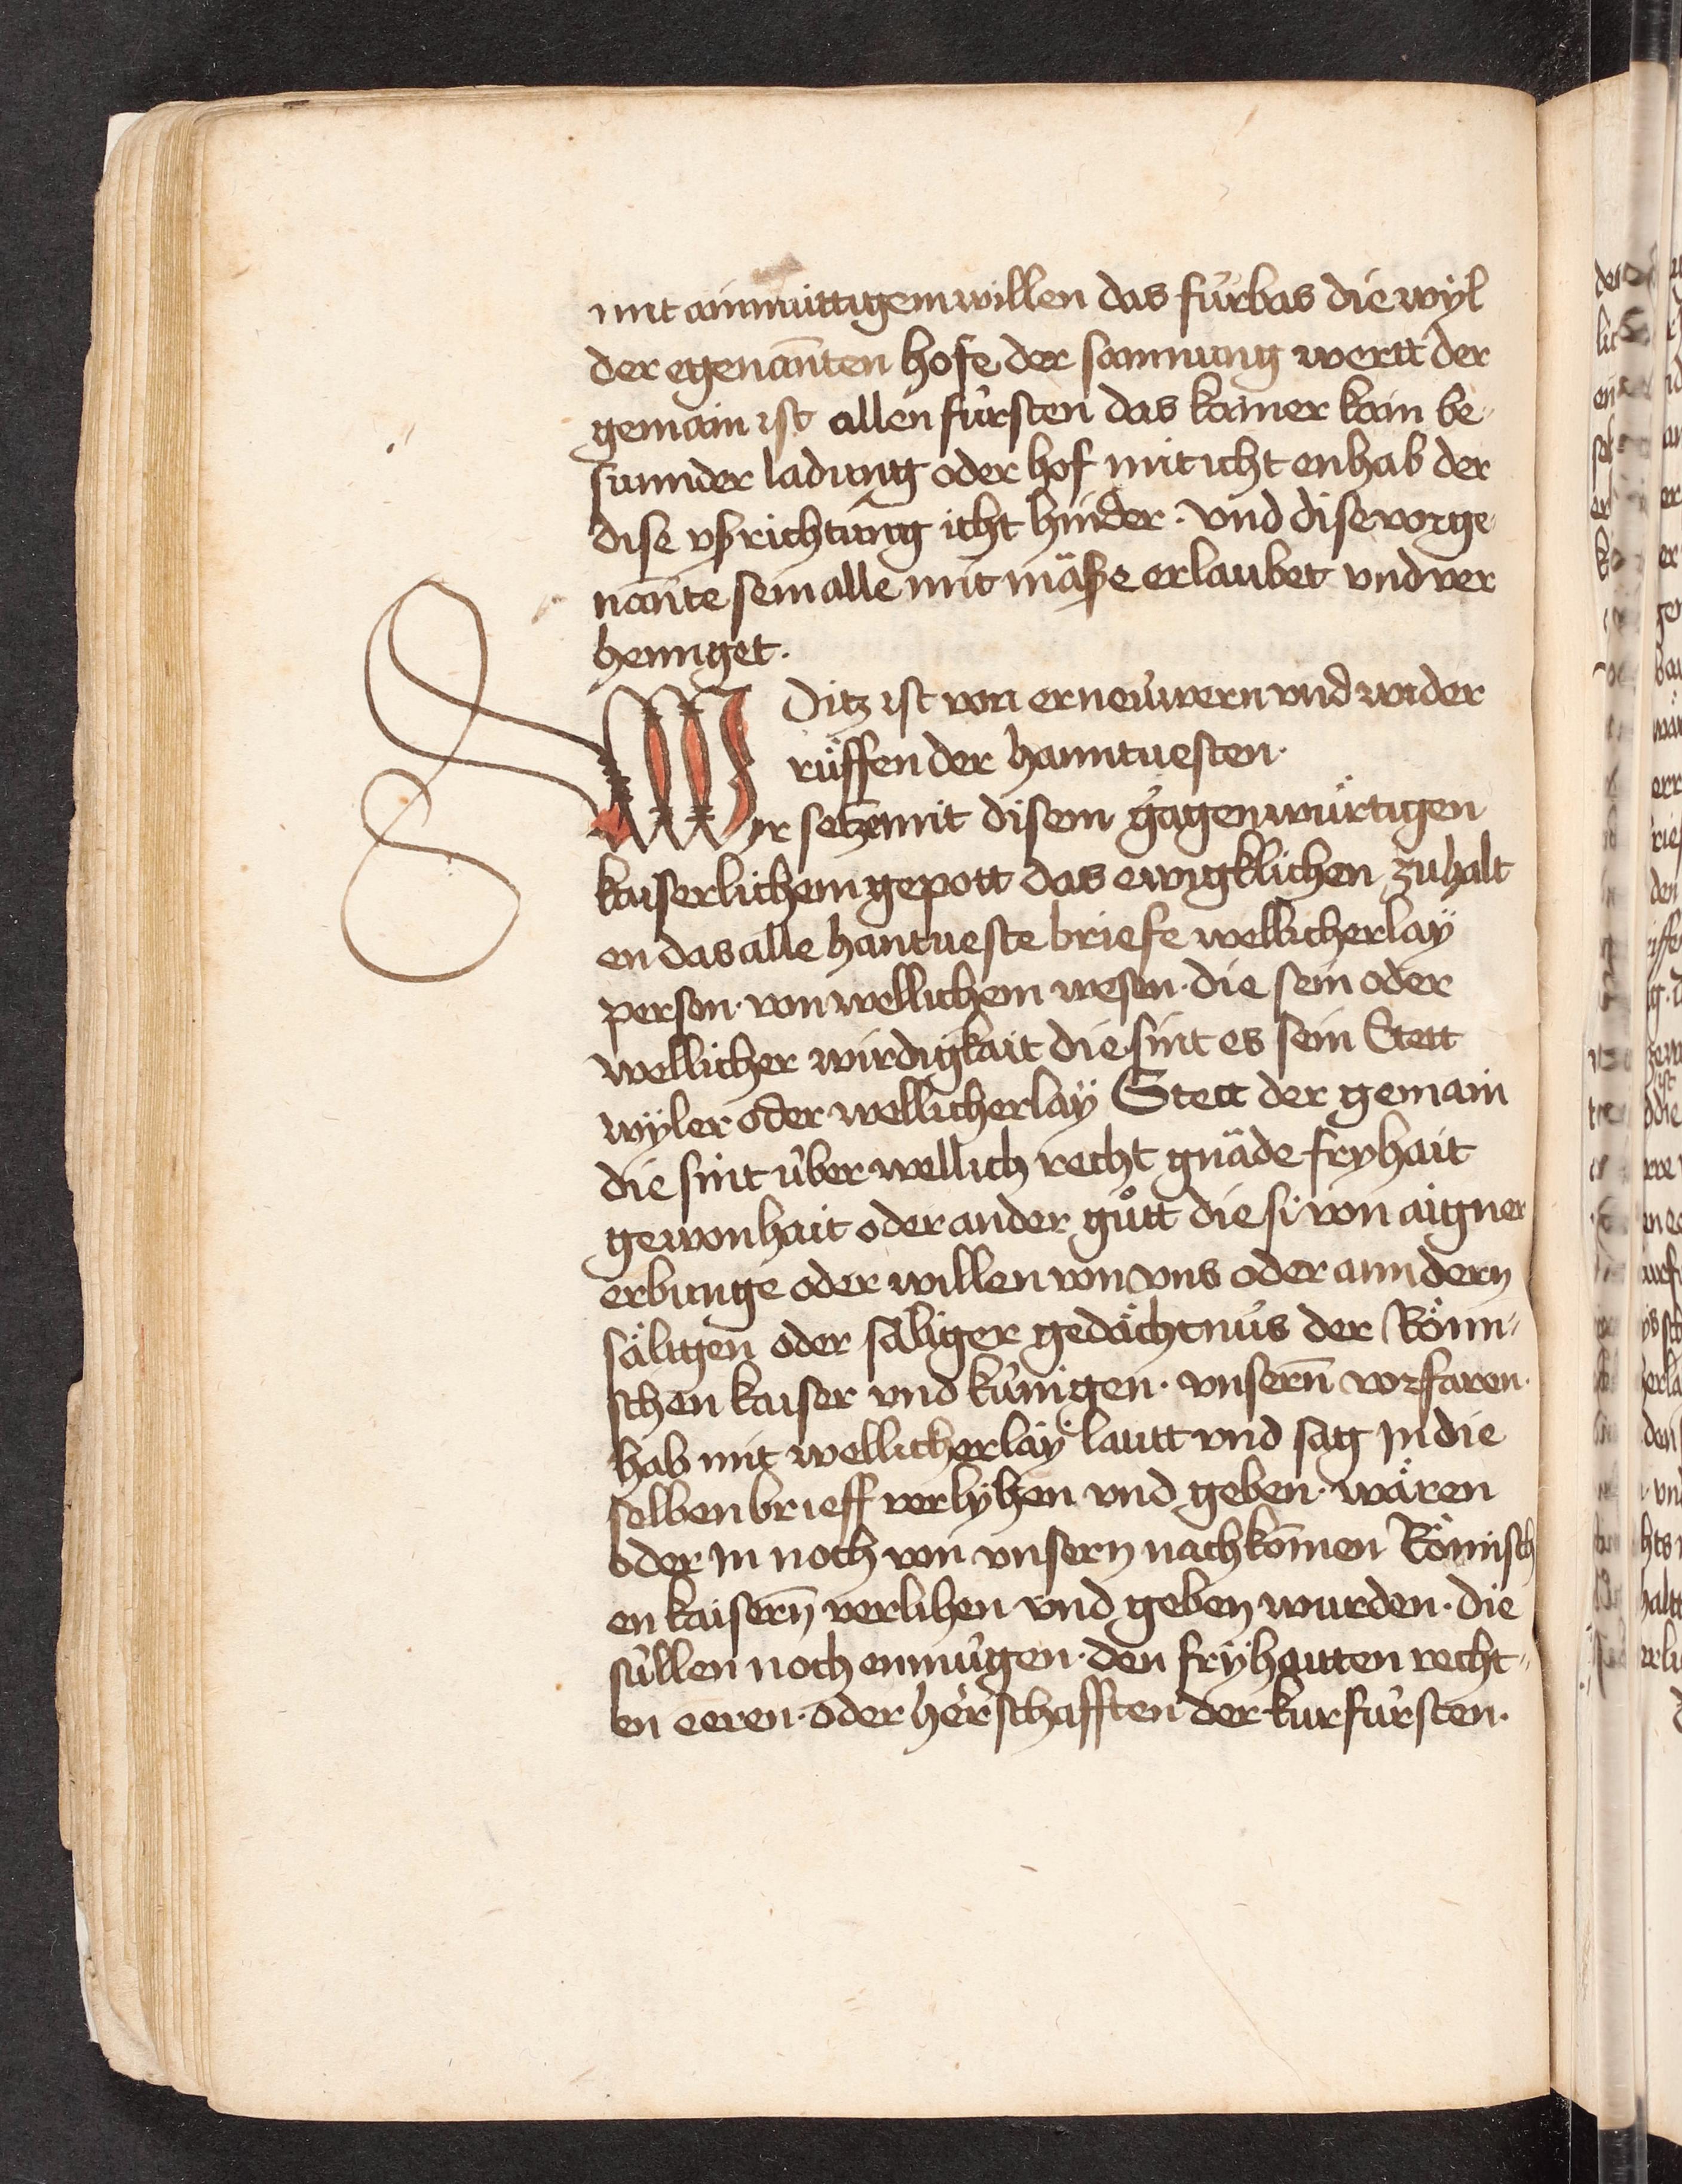 mit ainmuͤttigem willen das fuͤrbas die wyl
der egenan̄ten hofe der samnung wertt der
gemain ist allen fuͤrsten das kainer kain be-
sunnder ladung oder hof mit icht enhab der
dise vßrichtung icht hinder · vnd dise vorge-
nan̄te sein alle mit mäße erlaubet vnd ver
hennget ·
Ditz ist von erneuwern vnd wider
ruͤffen der hanntuesten ·
Wyr setzen mit disem gagenwuͤrtigen
kaiserlichem gepott das ewigklichen zu halt
en das alle hantueste briefe wellicherlaÿ
person · von wellichem wesen · die sein oder
wellicher wirdigkait die sint es sein Stett
wÿler oder wellicherlaÿ Stett der gemain
die sint uͤber wellich recht gnäde fryhait
gewonhait oder ander guͦtt die si von aigner
erbunge oder willen von vns oder anndern
säligen oder säliger gedächtnuͤs der Römi-
schen kaiser vnd kuͤnigen · vnsern̄ vorfaren ·
hab mit wellicherlaÿ lautt vnd sag in die
selben brieff verlyhen vnd geben · wären
oder in noch von vnsern nachkom̄en Römisch
en kaisern̄ verlihen vnd geben wurden · die
suͤllen noch enmuͤgen · den frÿhaitten recht-
en eeren · oder herschafften der kurfuͤrsten ·